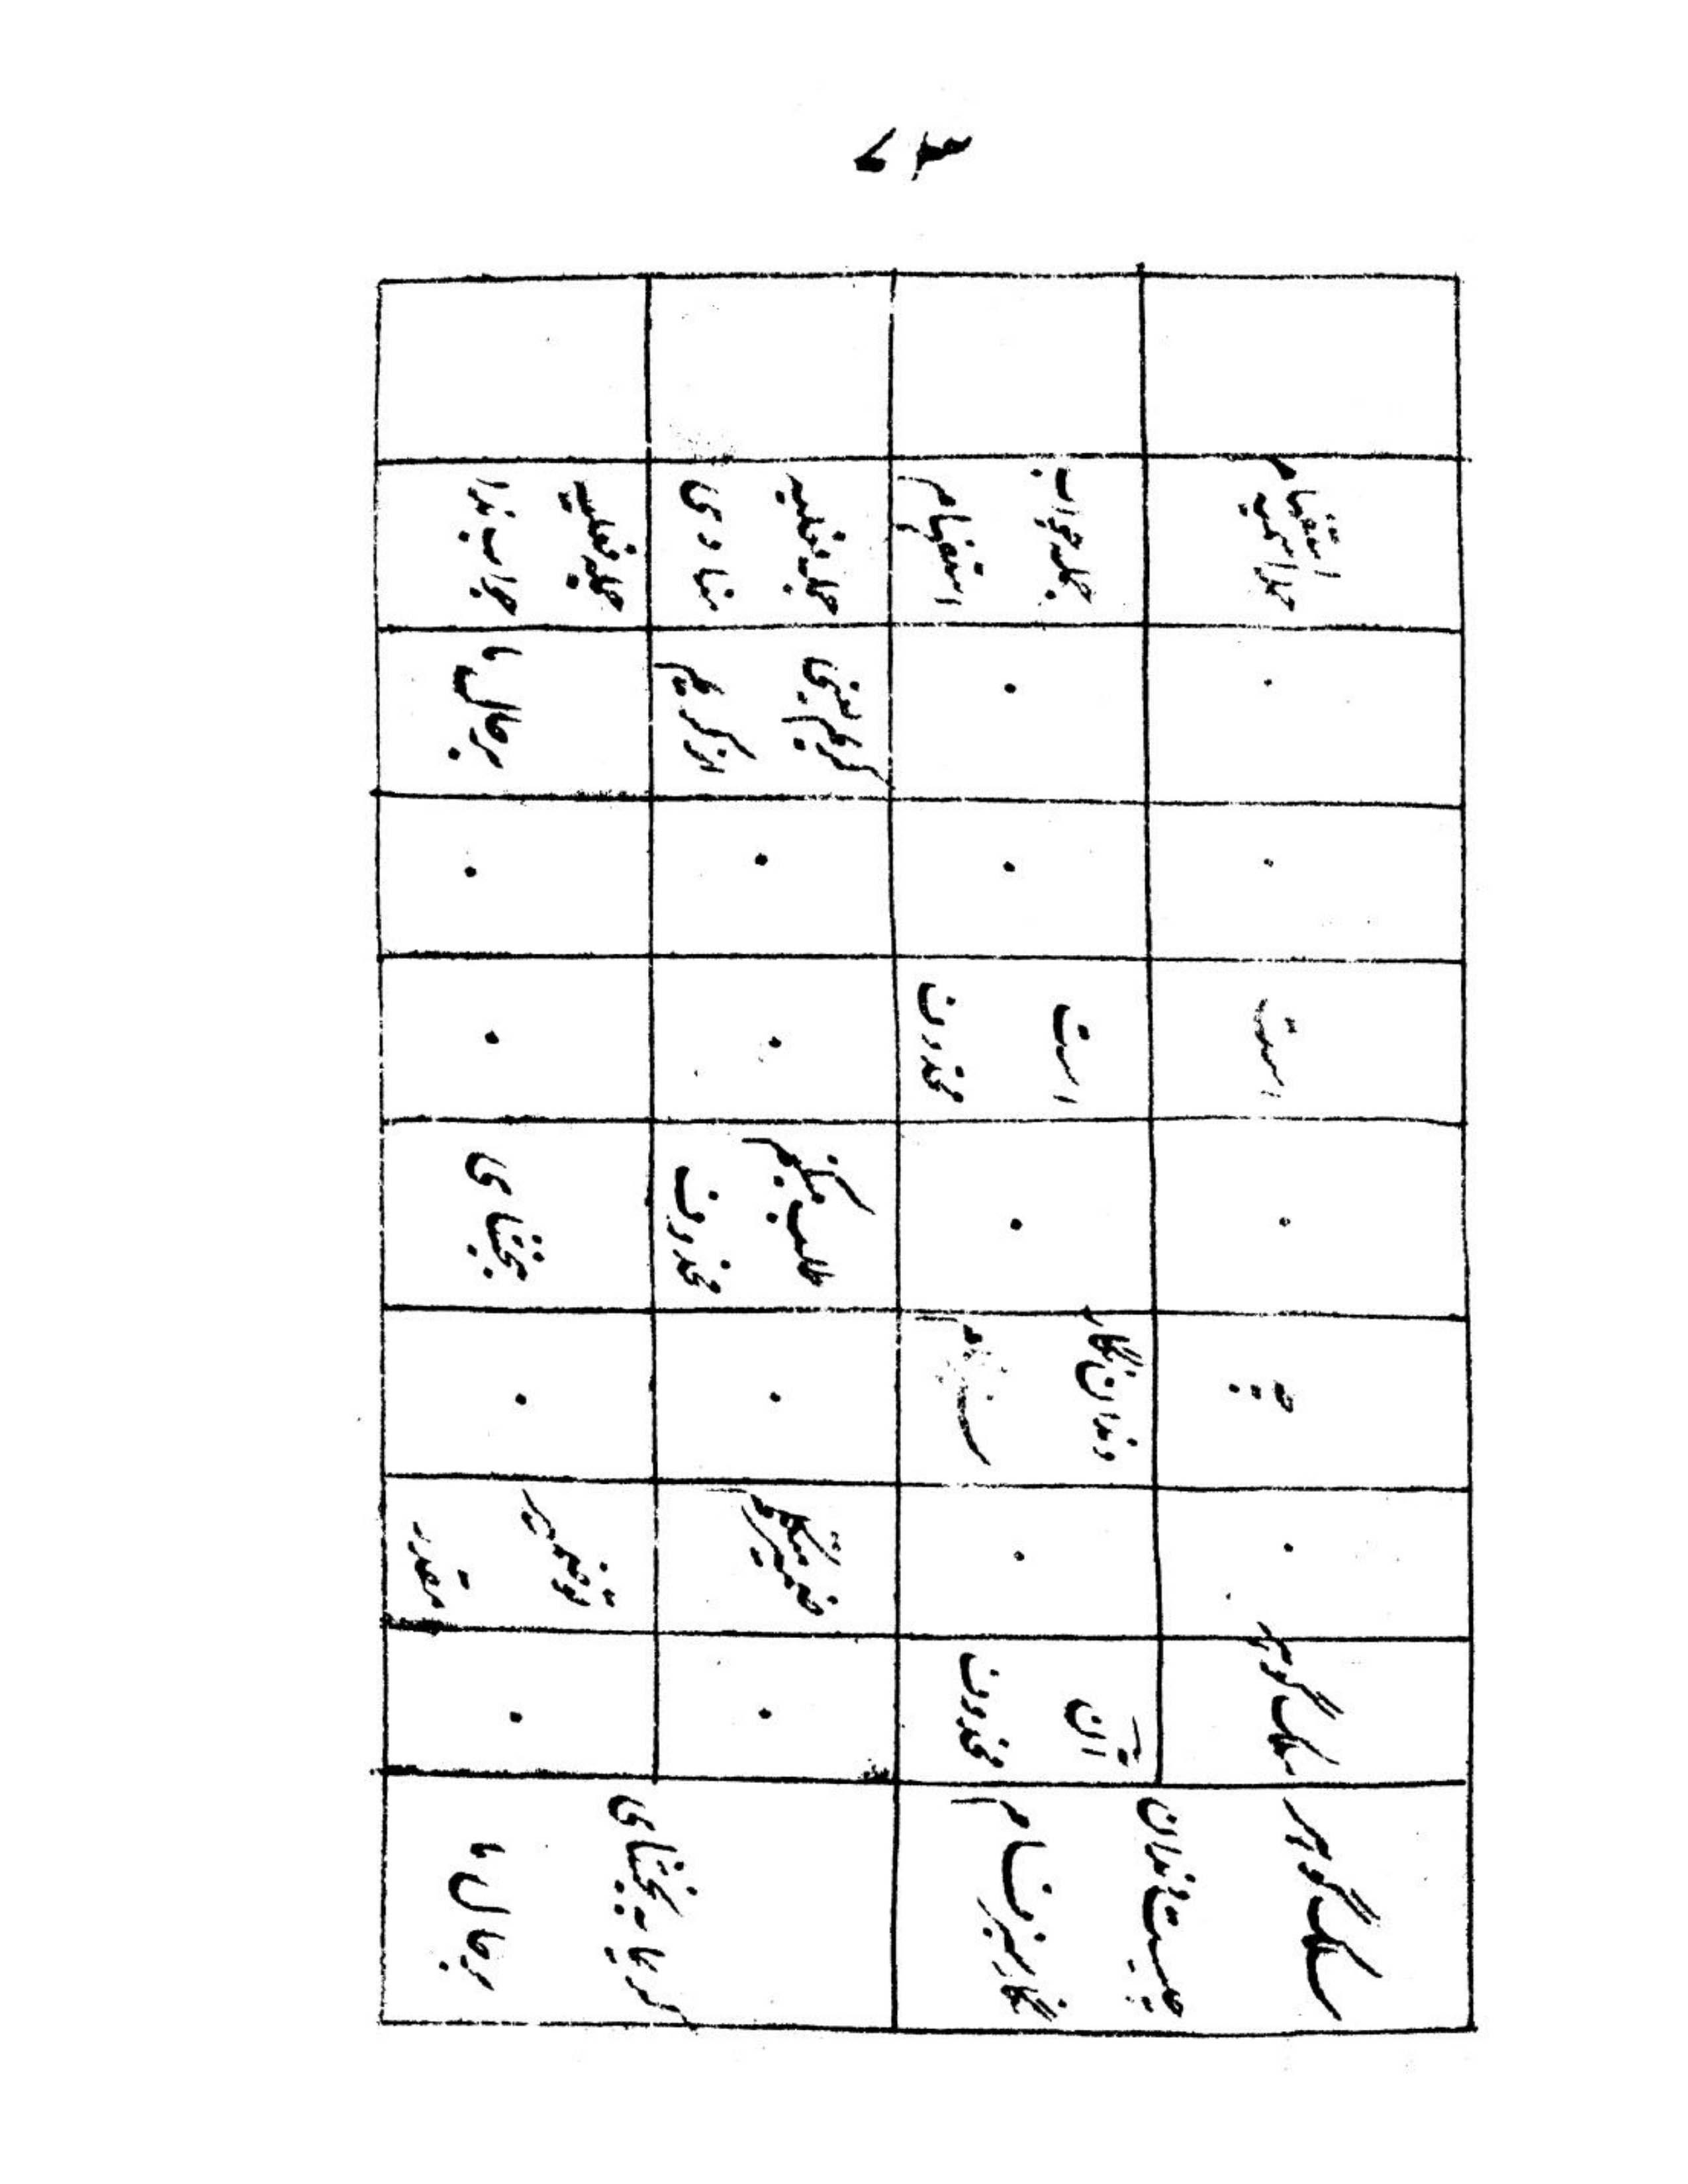 سلک گوهر
چیست دندان
نگار سبزفام
سلک گوهر
چه
است
جمله اسمیه
استفهام
آن
محذوف
دندان نگار
است
محذوف
جمله جواب
استفهام
کریما ببخشای
بر حال ما
ضمیر متکلم
طلب میکنم
محذوف
کریم یعنی
از کریم
جمله فعلیه
منادی
تو ضمیر
مقدر
بخشای
بر حال ما
جمله فعلیه
جواب ندا